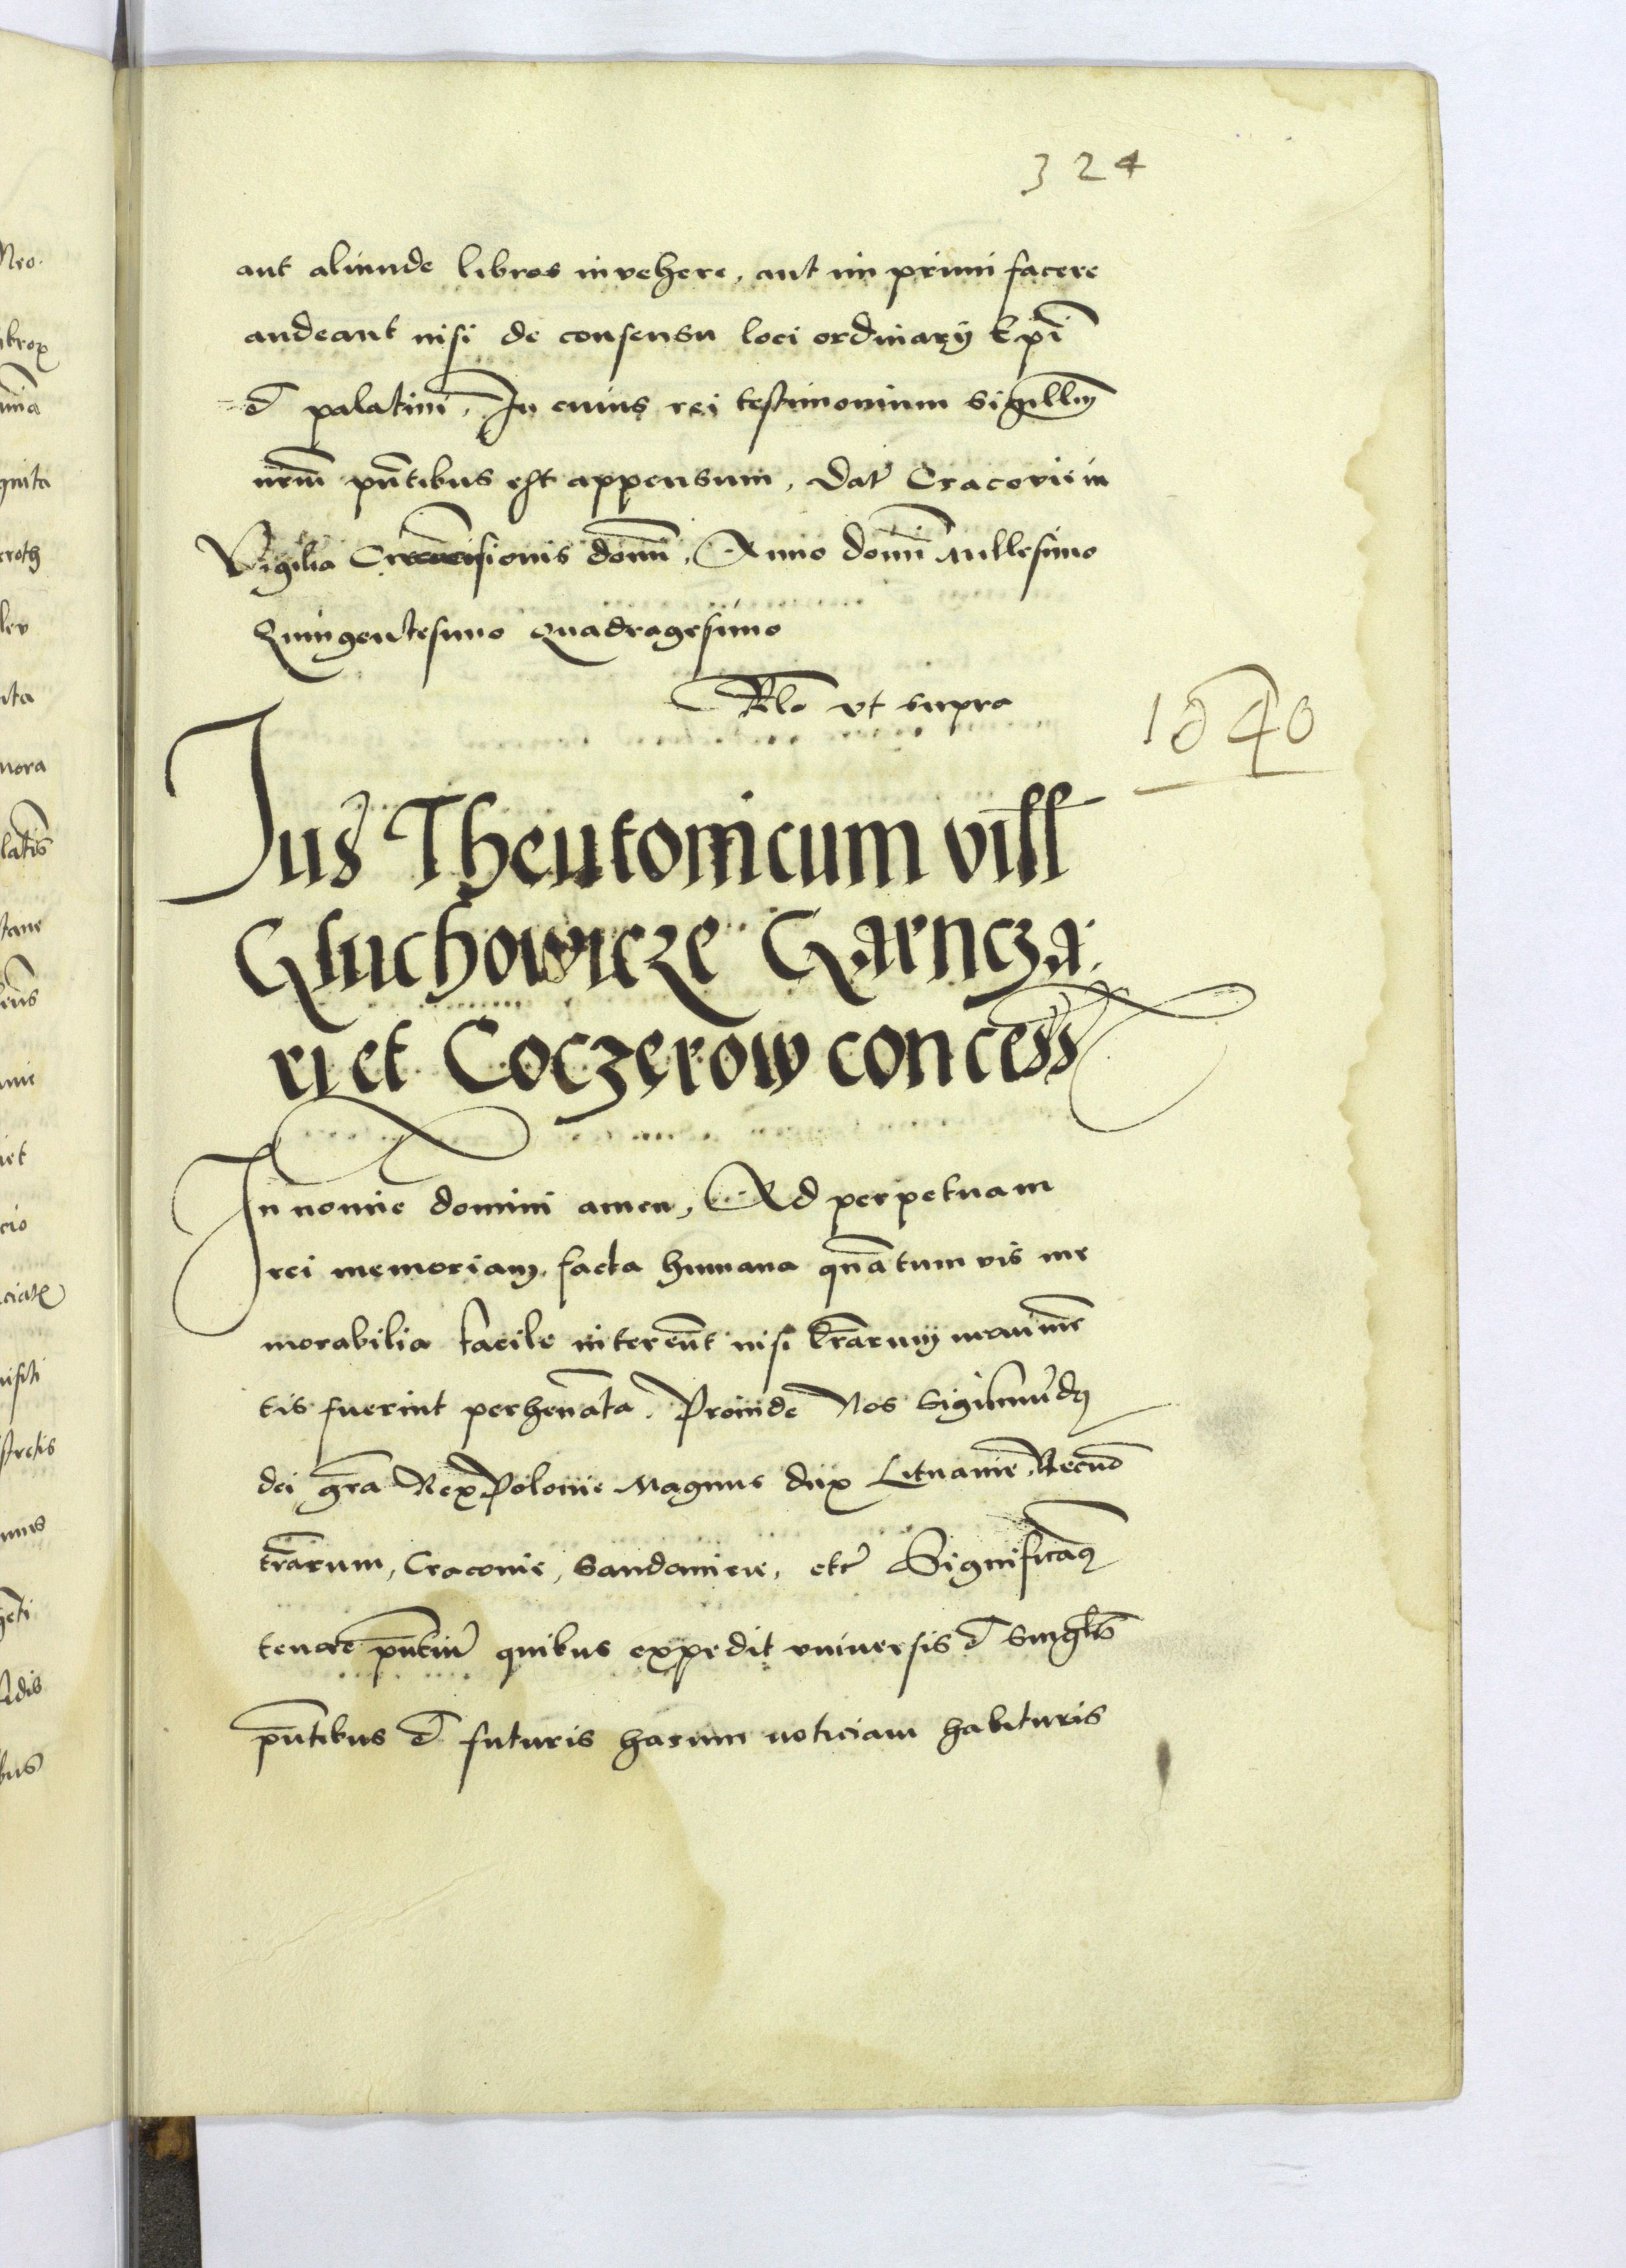 324
aut aliunde libros invehere, aut imprimi facere
audeant nisi de consensu loci ordinarij Epi
et palatini, In cuius rei testimonium Sigillum
nrm pntibus est appensum, Dat Cracovie in
Vigilia Circumcisionis domi, Anno domi Millesimo
Quingentesimo Quadragesimo
Rlo vt supra
1540
Jus Theutonicum vill
Gluchowicze Garncza
ri et Coczerow concess
In nomie domini amen, Ad perpetuam
rei memoriam, facta humana quatum vis me
morabilia facile intereut nisi lrarum monume
tis fuerint perhenata, Proinde Nos Sigismudus
dei gra Rex Polonie Magnus dux Lituanie, Necno
trarum, Cracovie, Sandomirie, etc Significamus
tenore pntium quibus expedit vniversis et singulis
pntibus et futuris harum noticiam habituris